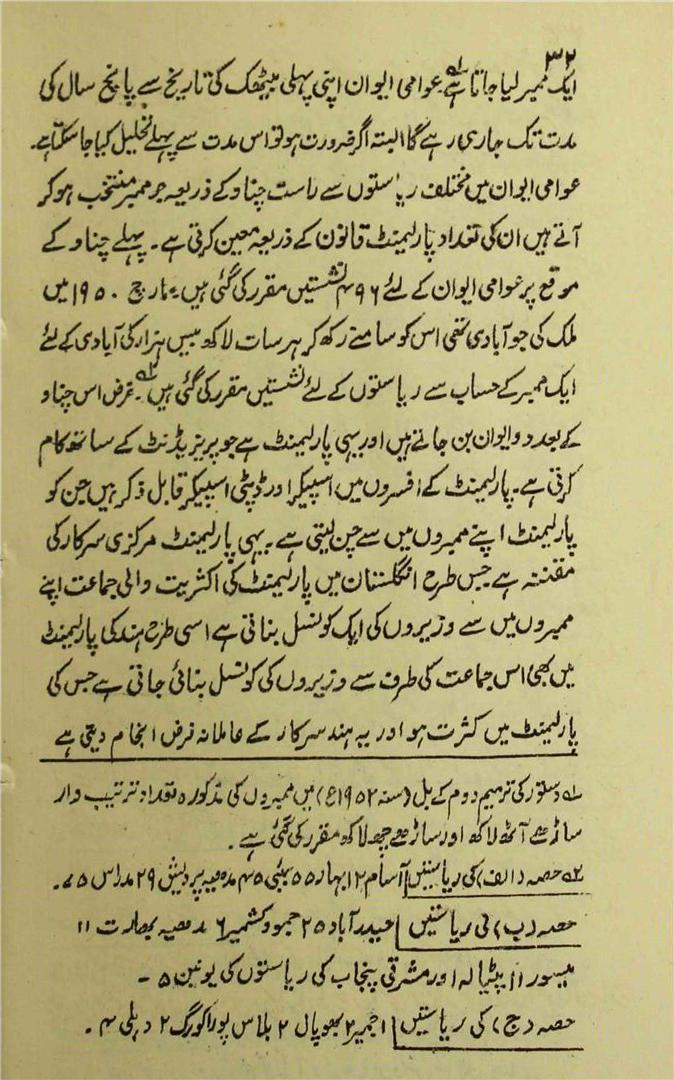 ۳۲
ایک ممبر لیا جاتا ہے۱؎ عوامی ایوان اپنی پہلی بیٹھک کی تاریخ سے پانچ سال کی
مدت تک جاری رہے گا البتہ اگر ضرورت ہو تو اس مدت سے پہلے تحلیل کیا جا سکتا ہے۔
عوامی ایوان میں مختلف ریاستوں سے راست چناو کے ذریعہ جو ممبر منتخب ہو کر
آتے ہیں ان کی تعداد پارلیمنٹ قانون کے ذریعہ معین کرتی ہے۔ پہلے چناو کے
موقع پر عوامی ایوان کے لئے ۴۹۶ نشستیں مقرر کی گئی ہیں۔ مارچ ۱۹۵۰ میں
ملک کی جو آبادی تھی اس کو سامنے رکھ کر ہر سات لاکھ بیس ہزار کی آبادی کے لئے
ایک ممبر کے حساب سے ریاستوں کے لئے نشستیں مقرر کی گئی ہیں۲؎۔ غرض اس چناو
کے بعد دو ایوان بن جاتے ہیں اور یہی پارلیمنٹ ہے جو پریزیڈنٹ کے ساتھ کام
کرتی ہے۔ پارلیمنٹ کے افسروں میں اسپیکر اور ڈپٹی اسپیکر قابل ذکر ہیں جن کو
پارلیمنٹ اپنے ممبروں میں سے چن لیتی ہے۔ یہی پارلیمنٹ مرکزی سرکار کی
مقننہ ہے جس طرح انگلستان میں پارلیمنٹ کی اکثریت والی جماعت اپنے
ممبروں میں سے وزیروں کی ایک کونسل بناتی ہے اسی طرح ہند کی پارلیمنٹ
میں بھی اس جماعت کی طرف سے وزیروں کی کونسل بنائی جاتی ہے جس کی
پارلیمنٹ میں کثرت ہو اور یہ ہند سرکار کے عاملانہ فرض انجام دیتی ہے
۱؎ دستور کی ترمیم دوم کے بل (سنہ ۱۹۵۲ع) میں ممبروں کی مذکورہ تعداد ترتیب وار
ساڑھے آٹھ لاکھ اور ساڑھے چھ لاکھ مقرر کی گئی ہے۔
۲؎ حصہ (الف) کی ریاستیں آسام ۱۲ بہار ۵۵ بمبئی ۴۵ مدھیہ پردیش ۲۹ مدراس ۷۵۔
حصہ (ب) کی ریاستیں حیدرآباد ۲۵ جموں و کشمیر ۶ مدھیہ بھارت ۱۱
میسور ۱۱ پٹیالہ اور مشرقی پنجاب کی ریاستوں کی یونین ۵ -
حصہ (ج) کی ریاستیں اجمیر ۲ بھوپال ۲ بلاس پور ۱ کورگ ۲ دہلی ۴۔